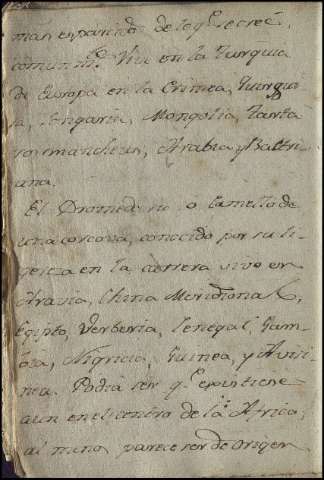 mas esparcido de lo q.e se creé,
comunm.te Vive en la Turquia
de Europa en la Crimea, Turqui
a, Ungaria, Mongolia, Tarta
ros mancheus, Arabia y Baltri
ana.
El Dromedario o Camello de
una corcova, conocido por su li
gereza en la carrera vive en
Aravia, China Meridional,
Egipto, Verberia, Senegal, Gam
bia, Nigricia, Guinea, y Avisi
nea. Podia ser q.e existiese
aun en el centro de la Africa,
al menos parece ser de origen